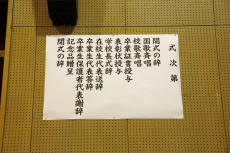 式次第
開式の辞
国歌斉唱
校歌斉唱
卒業証書授与
表彰状授与
学校長式辞
在校生代表送辞
卒業生代表答辞
卒業生保護者代表謝辞
記念品贈呈
閉式の辞